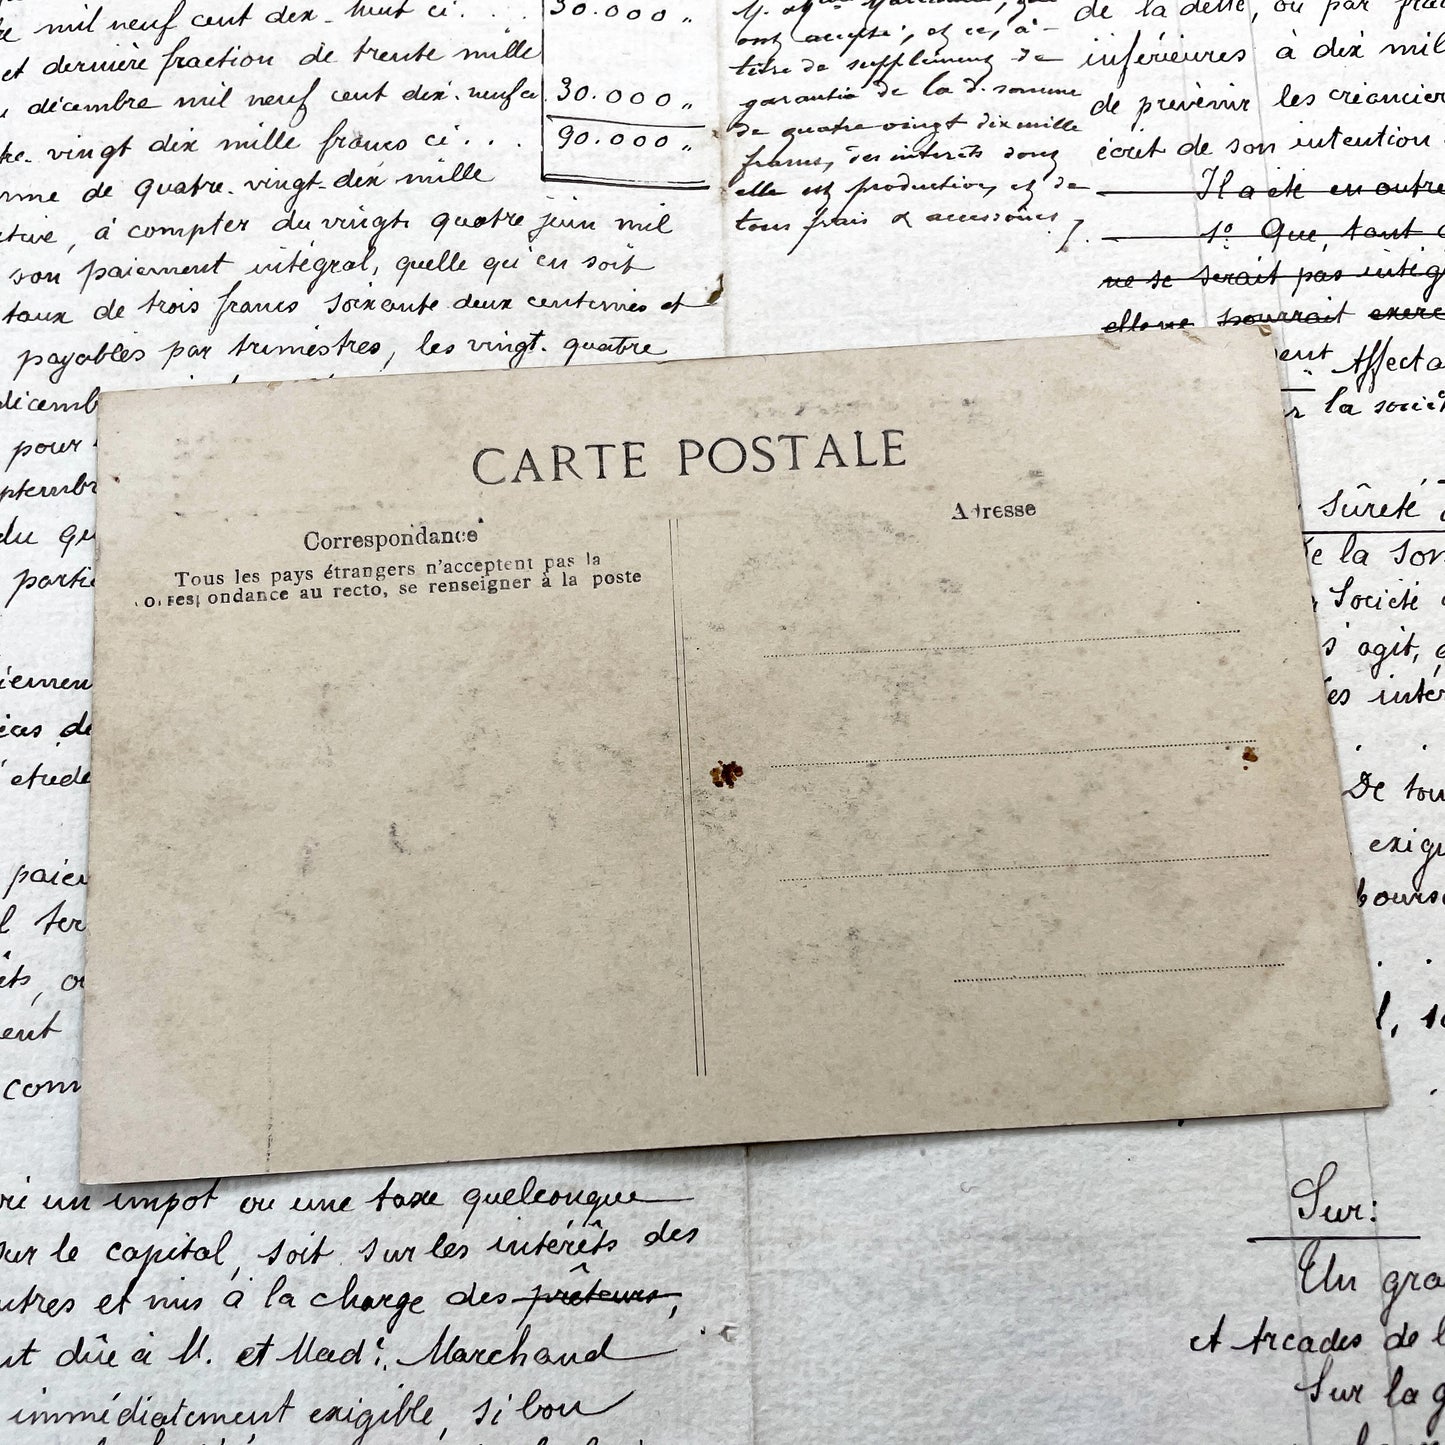 re mil neuf cent dix-huit ci. . .
30.000 "
et dernière fraction de trente mille
décembre mil neuf cent dix-neuf ci
30.000 "
vingt dix mille francs ci . . .
90.000 "
de quatre-vingt-dix mille
, à compter du vingt quatre juin mil
son paiement intégral, quelle qu'en soit
taux de trois francs soixante deux centimes et
payables par trimestres, les vingt-quatre
pour
du
ont accepté, et ce, à
titre de supplément de
garantie de la d. somme
de quatre-vingt dix mille
francs, des intérêts dont
elle est productive, et de
tous frais & accessoires
de la dette, ou par
inférieures à dix mil
de prévenir les créancier
écrit de son intention
Il a été en outre
1º Que, tant
ne se serait pas intég
elle ne pourrait exerc
Affecta
la socié
sûreté
de la som
Société
s'agit,
es intér
De tou
exig
bours
CARTE POSTALE
Correspondance
Tous les pays étrangers n'acceptent pas la
correspondance au recto, se renseigner à la poste
Adresse
paie
ent
com
un impôt ou une taxe quelconque
sur le capital, soit sur les intérêts des
utres et mis à la charge des prêteurs,
nt dûe à M. et Made. Marchand
immédiatement exigible, si bon
Sur:
Un gra
et Arcades de l
Sur la g